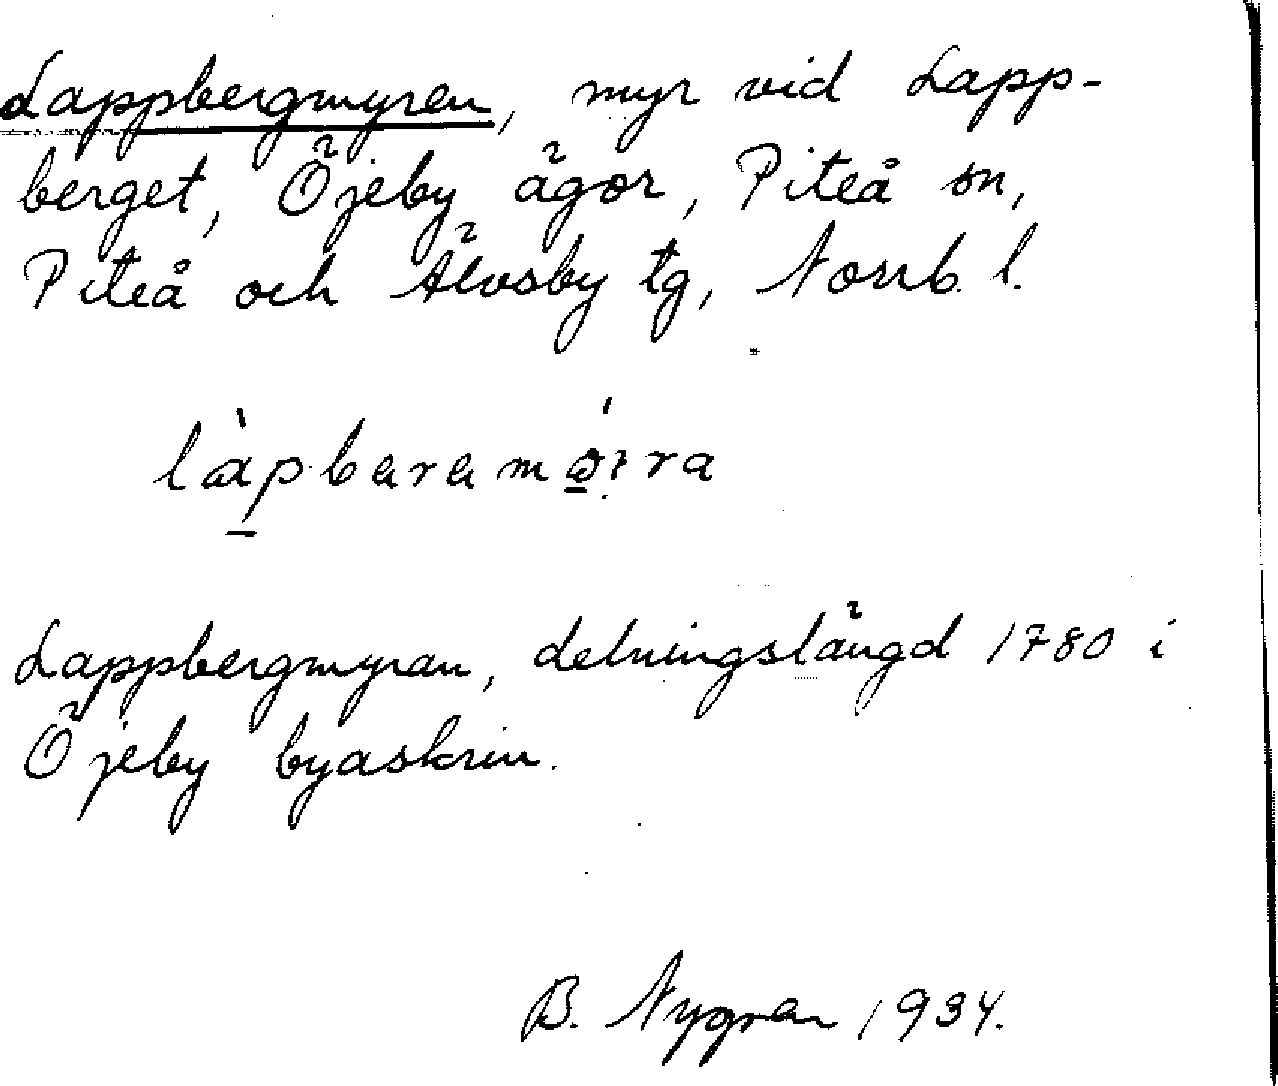 Lappbergmyren, myr vid Lapp-
berget, Öjeby ägor, Piteå sn,
Piteå och Älvsby tg, Norrb. l.
Lappbergmyran, delningslängd 1780 i
Öjeby byaskrin.
B. Nygren 1934.